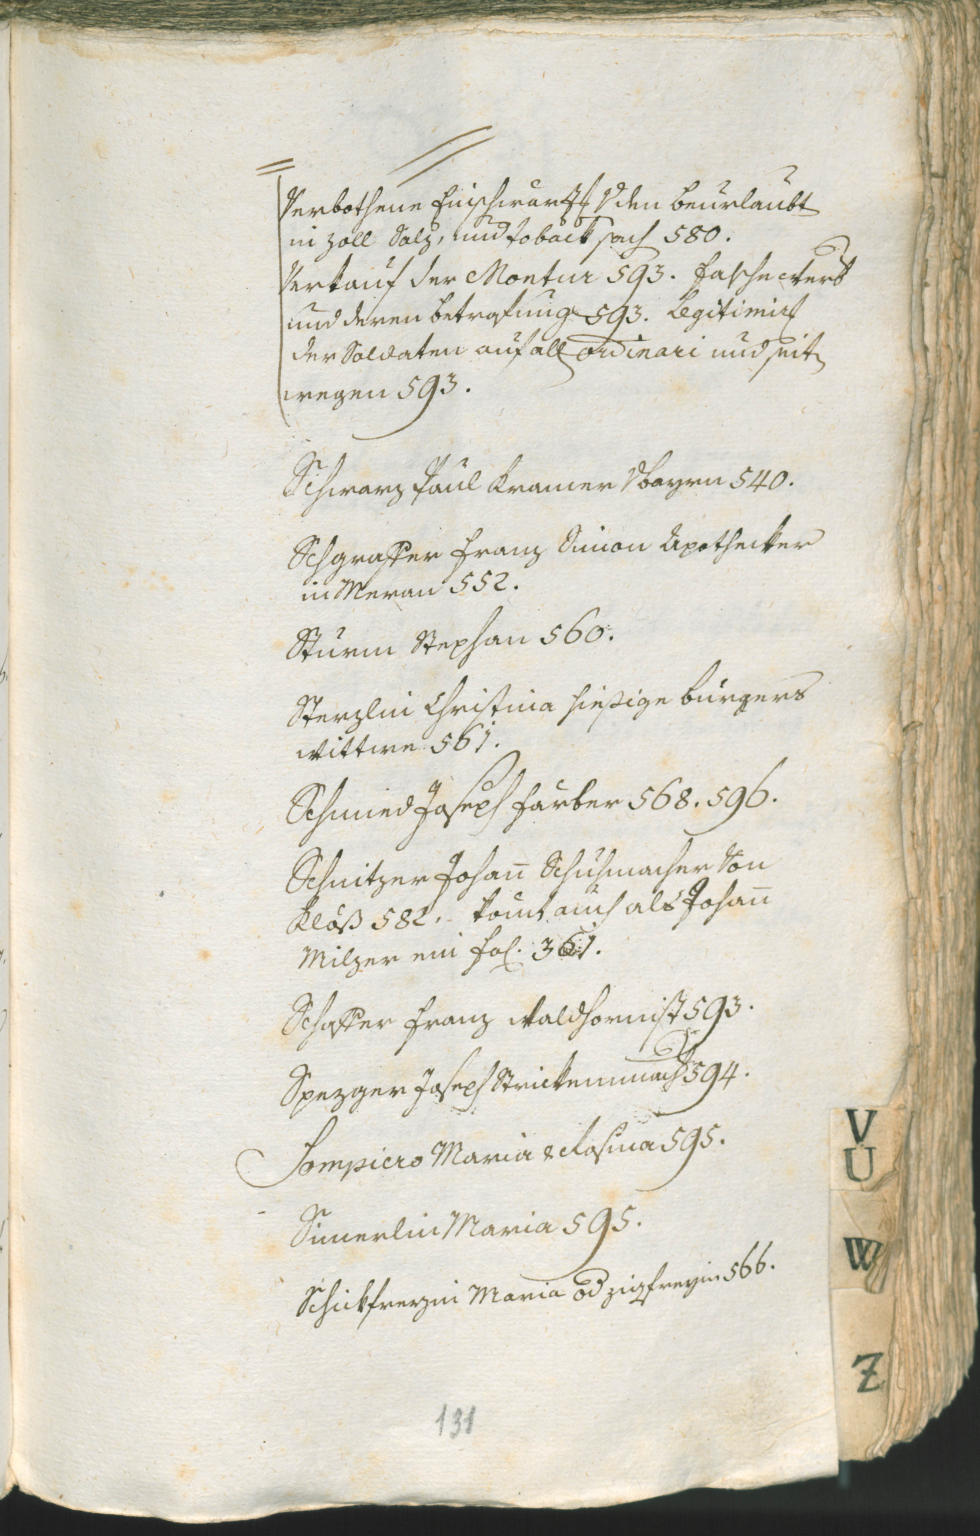 Verbothene Einschwärzg Vden beurlaubt
in Zoll Salz, und Toback sach 580.
Verkauf der Montur 593. falsche Werb
und deren bestrafung 593. Legitimirg
der Soldaten auf all ordinari und seit
wegen 593.
Schwarz Paul Kramer V bayrn 540.
Schgraffer Franz Simon Apothecker
in Meran 552.
Sturm Stephan 560.
Sterzlin Christina hiesige burgers
wittwe 561.
Schmied Joseph färber 568. 596.
Schnitzer Johan̄ Schuhmacher Von
Kloß 582. komt auch als Johan̄
Milzer ein fol. 361.
Schaffer Franz Waldhornist 593.
Spezger Joseph Strickenmach 594.
Sompiero Maria Rosina 595.
Simerlin Maria 595.
Schickfrezin Maria od Zigfreyin 566.
131
V
U
W
Z